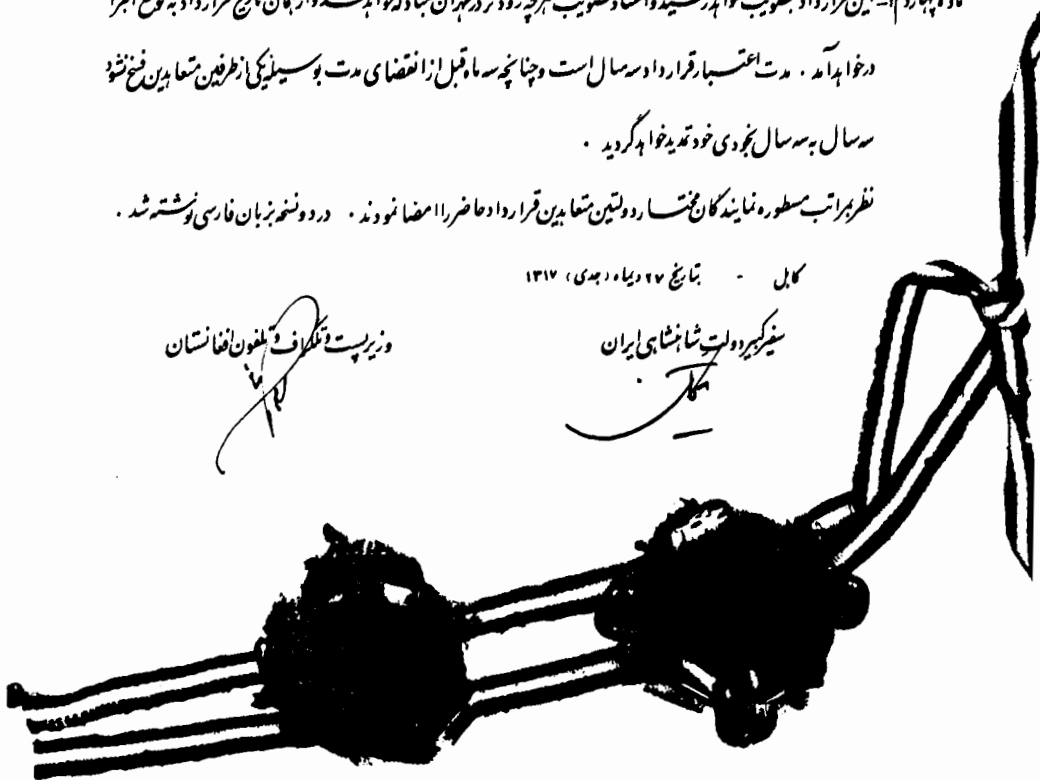 ماده چهاردهم - این قرارداد بتصویب خواهد رسید و اسناد تصویب هرچه زودتر در تهران مبادله خواهد شد و از همان تاریخ قرارداد بموقع اجرا
درخواهد آمد . مدت اعتبار قرارداد سه سال است و چنانچه سه ماه قبل از انقضای مدت بوسیله یکی از طرفین متعاهدین فسخ نشود
سه سال به سه سال بخودی خود تمدید خواهد گردید .
نظر بمراتب مسطوره نمایندگان مختار دولتین متعاهدین قرارداد حاضر را امضا نمودند . در دو نسخه بزبان فارسی نوشته شد .
کابل - بتاریخ ۲۷ دیماه (جدی) ۱۳۱۷
سفیر کبیر دولت شاهنشاهی ایران
وزیر پست و تلگراف و تلفون افغانستان